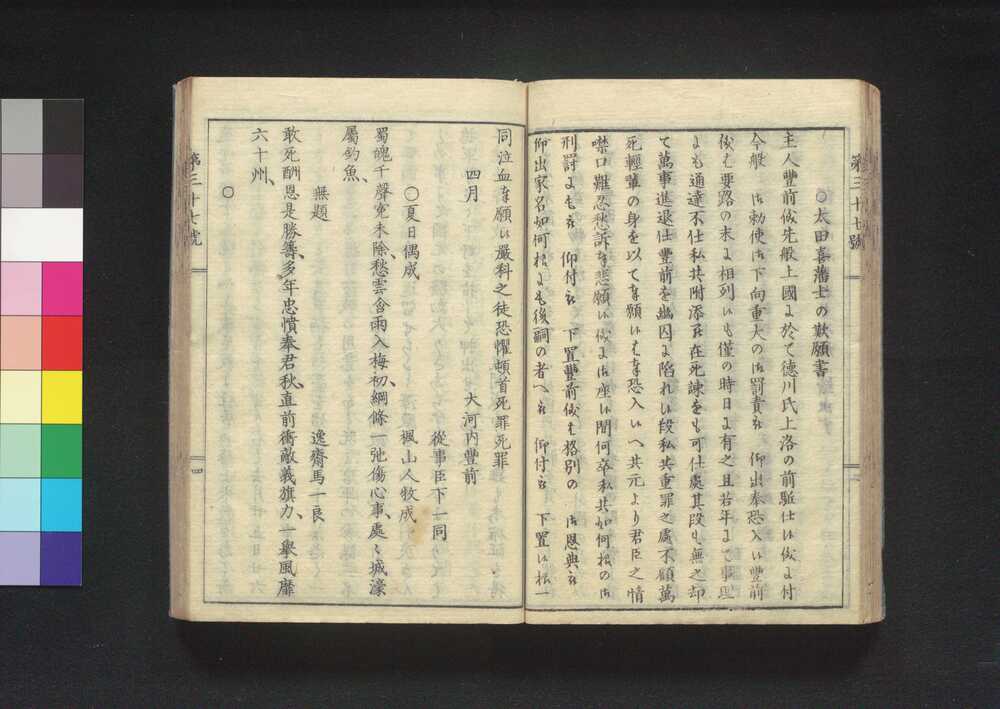 第三十七號
○太田喜藩士の歎願書
主人豐前儀先般上國よ於て德川氏上洛の前驅仕い儀よ付
今般 御勅使御下向重大の御罰責被 仰出奉恐入い豐前
儀も要路の末よ相列いも僅の時日よ有之且若年よて事理
よも通達不仕私共附添罷在死諫をも可仕處其段も無之却
て萬事進退仕豐前を幽囚よ陷れい段私共重罪之處不顧萬
死輕輩の身を以て奉願いも奉恐入いへ共元より君臣之情
噤口難忍愁訴奉悲願い儀よ御座い間何卒私共如何樣の御
刑罰よも被 仰付被 下置豐前儀も格別の 御恩典被
仰出家名如何樣よも後嗣の者へ被 仰付被 下置い樣一
同泣血奉願い嚴科之徒恐懼頓首死罪死罪
四月 大河內豐前
從事臣下一同
○夏日偶成 楓山人牧成
蜀魄千聲寃未除、愁雲含雨入梅初、綱條一弛傷心事、處〻城濠
屬釣魚、
無題 逸齋馬一良
敢死酬恩是勝籌、多年忠憤奉君秋、直前衝敵義旗力、一擧風靡
六十州、
○
第三十七號
四